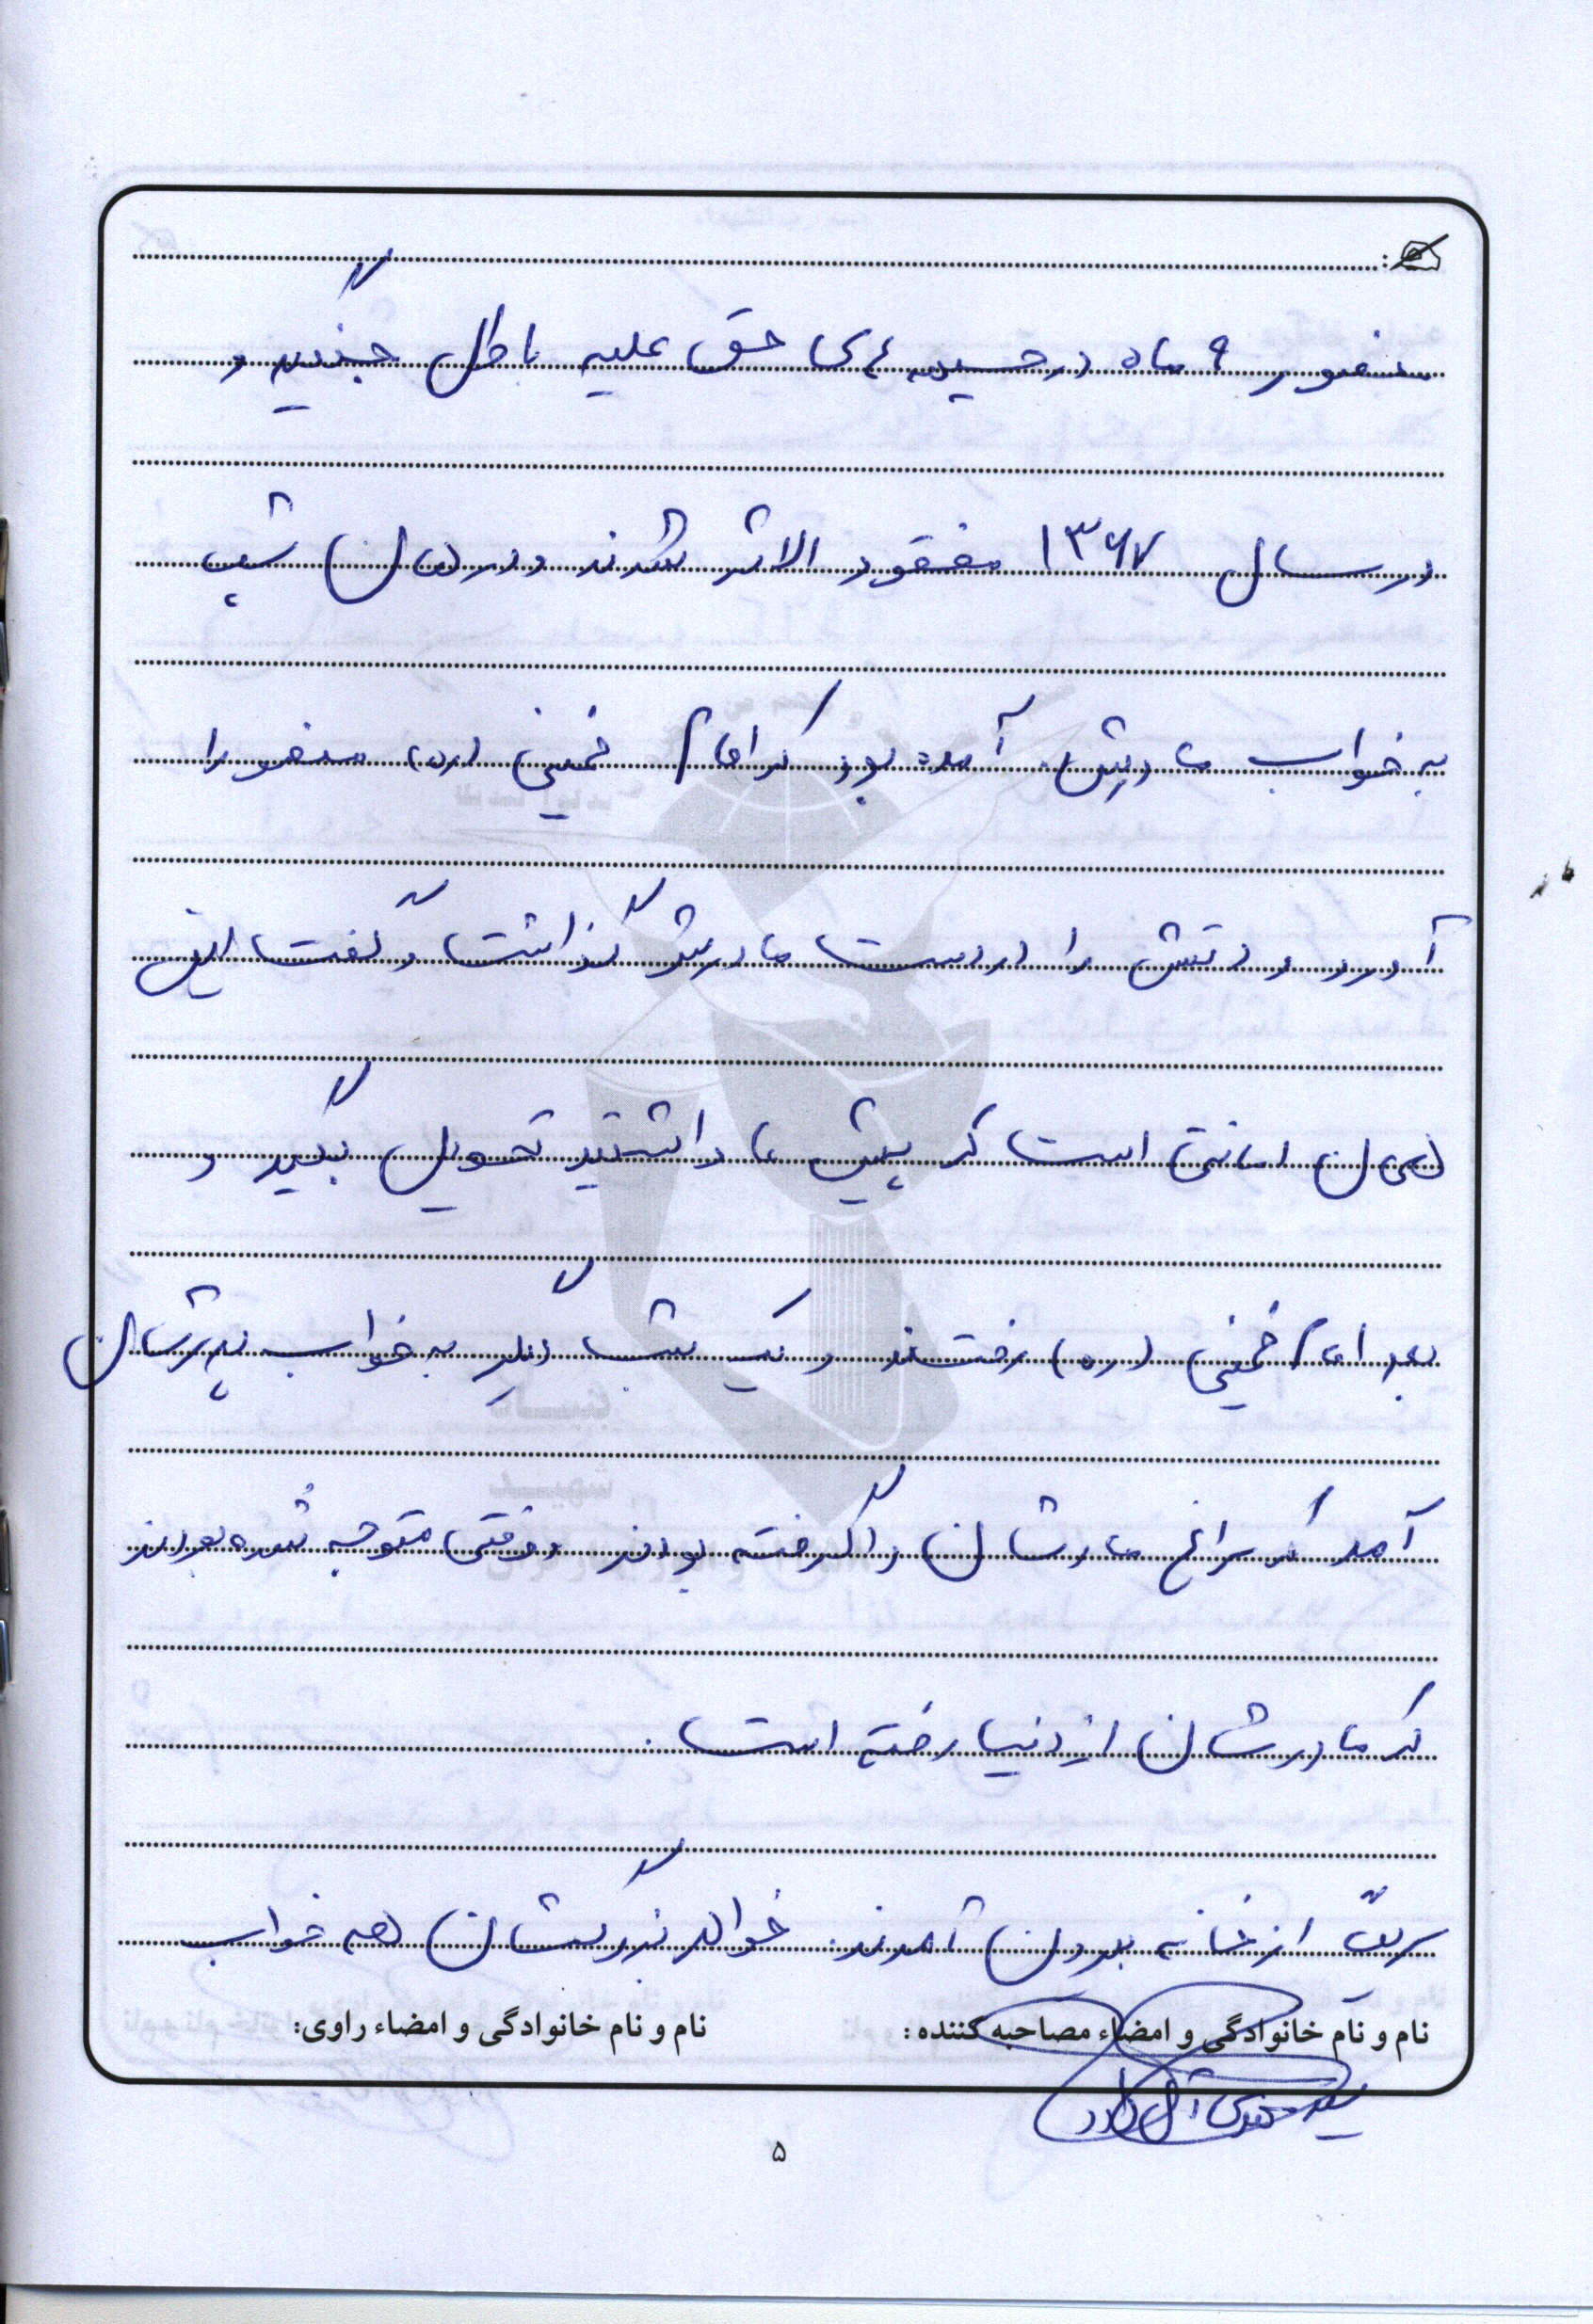 ۹ ماه در جبهه های حق علیه باطل جنگید و
در سال ۱۳۶۷ مفقود الاثر شدند و در همان شب
به خواب مادرش آمده بود که امام خمینی (ره) را
آورد و دستش را در دست مادرش گذاشت و گفت این
همان امانتی است که پیش ما داشتید تحویل بگیر و
بعد امام خمینی (ره) رفتند و یک شب دیگر به خواب پدرشان
آمد که سراغ مادرشان را گرفته بودند وقتی متوجه شده بودند
که مادرشان از دنیا رفته است.
از خانه بیرون آمدند. خواهر بزرگشان هم خواب
نام و نام خانوادگی و امضاء مصاحبه کننده:
نام و نام خانوادگی و امضاء راوی:
۵